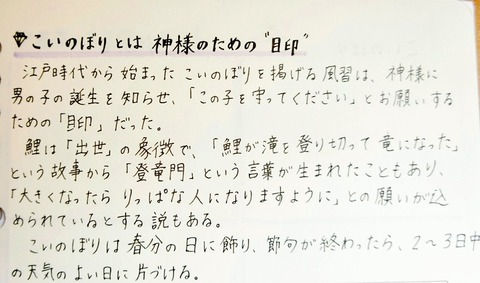 こいのぼりとは 神様のための"目印"
江戸時代から始まった こいのぼりを掲げる風習は、神様に
男の子の誕生を知らせ、「この子を守ってください」とお願いする
ための「目印」だった。
鯉は「出世」の象徴で、「鯉が滝を登り切って 竜になった」
という故事から「登竜門」という言葉が生まれたこともあり、
「大きくなったら りっぱな人になりますように」との願いが込
められているとする説もある。
こいのぼりは春分の日に飾り、節句が終わったら、2〜3日中
の天気のよい日に片づける。